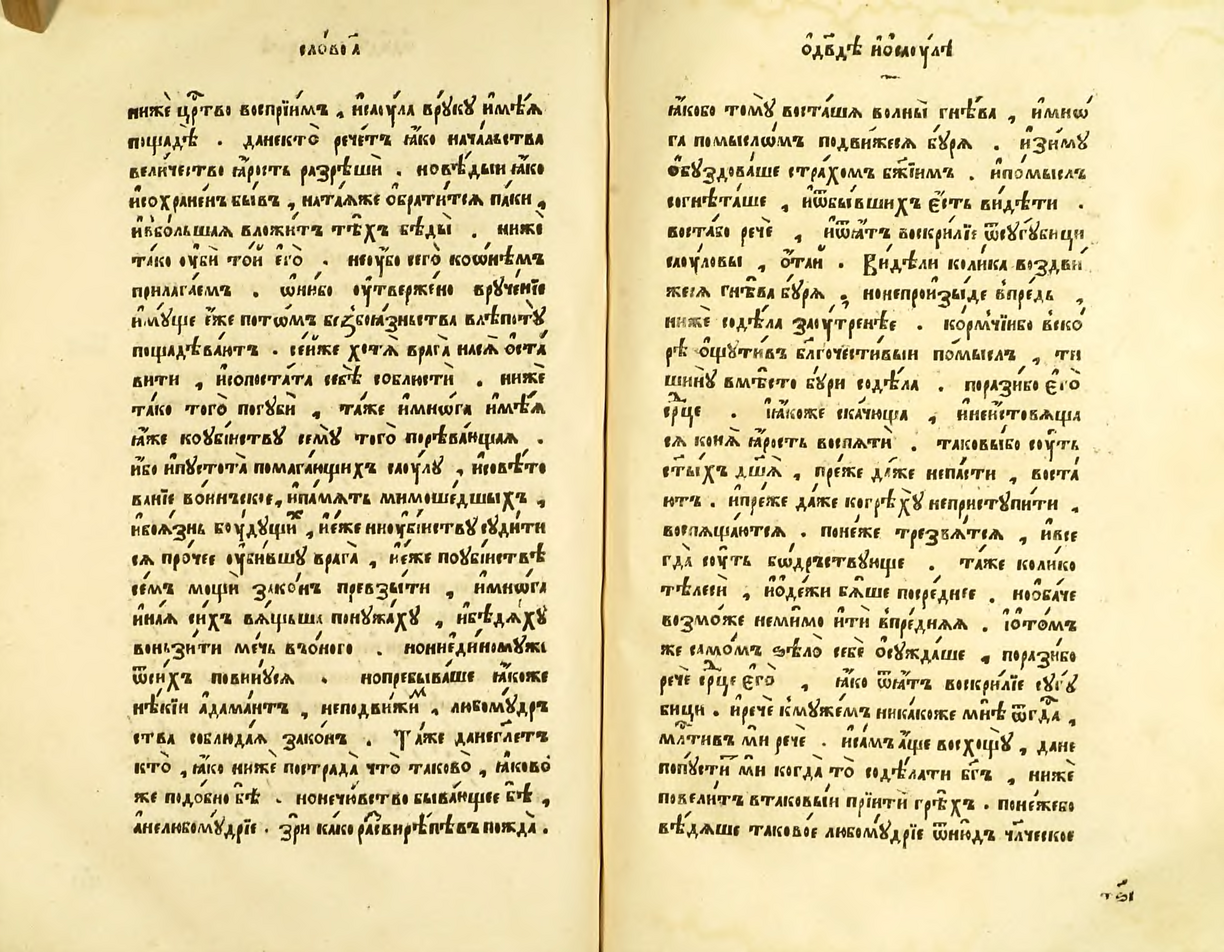 сло́во а҃
ниже црⷭ҇тво воспрїимъ , исаоула врꙋкꙋ имѣѧ
пощадѣ . данекто̀ речетъ ꙗко начальства
величество ꙗрость разрѣши . новѣдыи ꙗко
исохраненъ бывъ , натаѧже обратитсѧ паки ,
ивбольшаѧ вложитъ тѣхъ бѣды . ниже
тако оуби той его̀ . неоубо сего̀ коѡнѣмъ
прилагаемъ . ѡнибо оутвержено врꙋченїе
имꙋще еже потѡмъ безбоꙗзньства влѣпотꙋ
пощадѣваютъ . сейже хотѧ врага насѧ оста
вити , исопостата себѣ соблюсти . ниже
тако того̀ погꙋби , таже имнѡга имѣѧ
ꙗже коубїиствꙋ семꙋ того̀ порѣвающаѧ .
ибо ипꙋстота̀ помагающихъ саоулꙋ , исовѣто
ванїе воиньское , ипамѧть мимошедшыхъ ,
ибоѧзнь боудꙋщиⷯ , иеже ниоубїиствꙋ сꙋдити
сѧ прочее оубившꙋ врага̀ , иеже поубїиствѣ
семъ мощи законъ превзыти , имнѡга
инаѧ сихъ вѧщьша понꙋжахꙋ , ибѣдѧхꙋ
воньзити мечь въоного . нониединомꙋже
ѿсихъ повинꙋсѧ . нопребываше ꙗкоже
нѣкїи адамантъ , неподвижиⷨ , любомꙋдръ
ства соблюдаѧ законъ . Таже данеглетъ
кто̀ , ꙗко ниже пострада̀ что таково̀ , ꙗково
же подобно бѣ . нонечювство бывающее бѣ ,
анелюбомꙋдрїе . зри како рассвирѣпѣвъ пожда̀ .
ѡдв҃дѣ ѝѡсаоулѣ
ꙗкобо томꙋ восташѧ волны гнѣва , имнѡ
га помыслѡмъ подвижесѧ бꙋрѧ . изимꙋ
обꙋздоваше страхомъ бж҃їимъ . ипомыслъ
согнѣташе , иѿбывшихъ есть видѣти .
востабо рече , иѿѧтъ воскрилїе ѿсꙋгꙋбици
саоуловы , ѻтаи . Видѣли колика воздви
жесѧ гнѣва бꙋрѧ ; нонепроизыде впредь ,
ниже содѣла заоутренѣе . кормчїибо вско
рѣ ощꙋтивъ благочестивыи помыслъ , ти
шинꙋ вмѣсто бꙋри содѣла . поразибо его
срⷣце . ꙗкоже скачюща , инеистовѧща
сѧ конѧ ꙗрость воспѧти . таковыбо соуть
ст҃ыхъ дш҃ѧ , преже даже непасти , воста
ютъ . ипреже даже когрѣхꙋ неприступити ,
воспѧщаютсѧ . понеже трезвѧтсѧ , ивсе
гда̀ соуть бѡдръствꙋюще . таже колико
тѣлеси , иодежи бѧше посреднее . нообаче
возможе немимо ити впреднѧѧ . іотомъ
же самомъ ѕѣло̀ себѐ осꙋждаше , поразибо
рече срⷣце его̀ , ꙗко ѿѧтъ воскрилїе сꙋгꙋ
бици . ирече кмꙋжемъ никакоже мнѣ ѿгда̀ ,
млⷭ҇тивъ ми рече . исамъ аще восхощꙋ , дане
попꙋстит ми когда̀ то̀ содѣлати бг҃ъ , ниже
повелитъ втаковыи прїити грѣхъ . понежебо
вѣдѧше таковое любомꙋдрїе ѿнюдъ члⷡ҇ческое